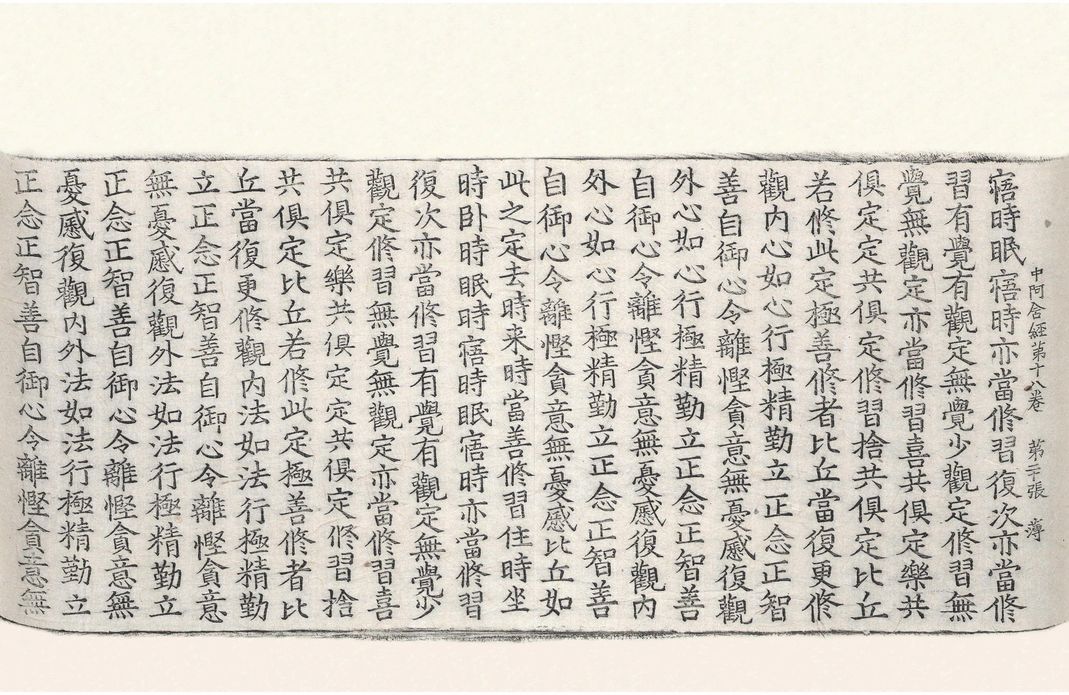 中阿含經第十八卷 第二十張 薄
寤時眠寤時亦當修習復次亦當修
習有覺有觀定無覺少觀定修習無
覺無觀定亦當修習喜共俱定樂共
俱定定共俱定修習捨共俱定比丘
若修此定極善修者比丘當復更修
觀內心如心行極精勤立正念正智
善自御心令離慳貪意無憂慼復觀
外心如心行極精勤立正念正智善
自御心令離慳貪意無憂慼復觀內
外心如心行極精勤立正念正智善
自御心令離慳貪意無憂慼比丘如
此之定去時来時當善修習住時坐
時臥時眠時寤時眠寤時亦當修習
復次亦當修習有覺有觀定無覺少
觀定修習無覺無觀定亦當修習喜
共俱定樂共俱定定共俱定修習捨
共俱定比丘若修此定極善修者比
丘當復更修觀內法如法行極精勤
立正念正智善自御心令離慳貪意
無憂慼復觀外法如法行極精勤立
正念正智善自御心令離慳貪意無
憂慼復觀內外法如法行極精勤立
正念正智善自御心令離慳貪意無